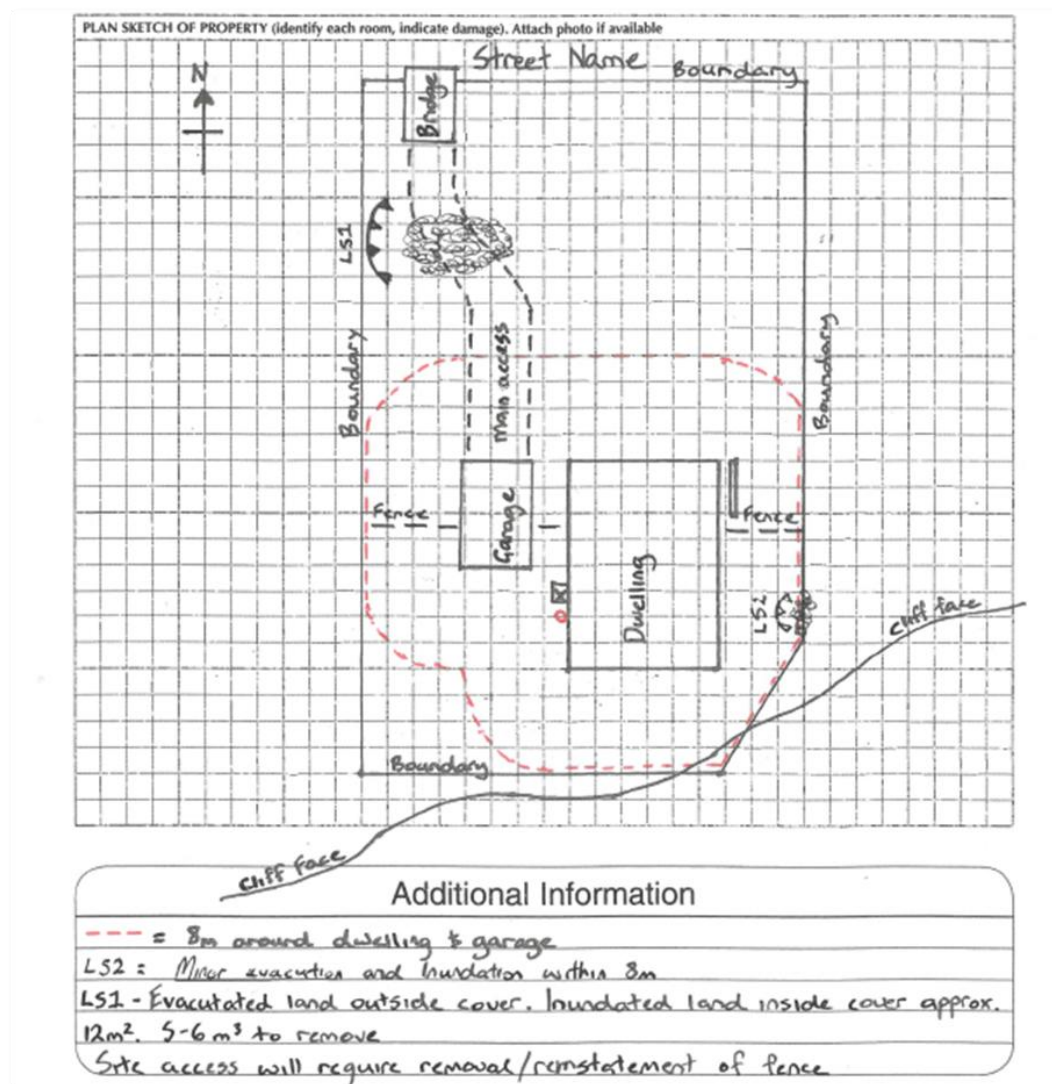 PLAN SKETCH OF PROPERTY (identify each room, indicate damage). Attach photo if available
Street Name
Boundary
N
Bridge
LS1
Boundary
Main access
Boundary
Fence
Garage
Fence
Dwelling
LS2
Cliff face
Boundary
Cliff Face
Additional Information
= 8m around dwelling & garage
LS2 = Minor evacution and Inundation within 8m
LS1 - Evacutated land outside cover. Inundated land inside cover approx.
12m². 5-6m³ to remove
Site access will require removal/reinstatement of fence